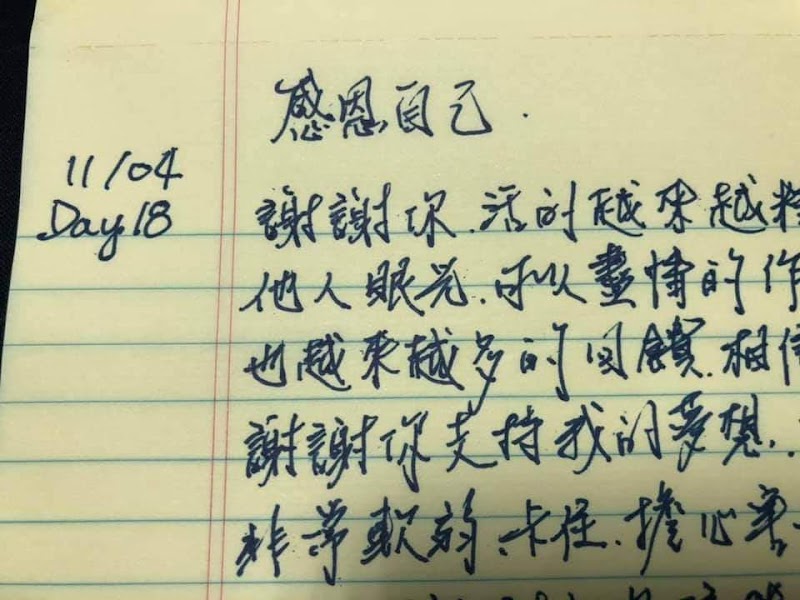 感恩自己.
11/04
Day18
謝謝你.活的越來越
他人眼光.可以盡情的作
也越來越多的回饋.相信
謝謝你支持我的夢想.
非常軟弱.卡住.擔心害